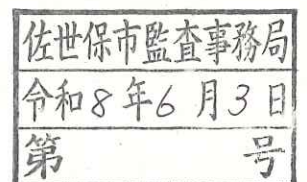 佐世保市監査事務局
令和8年6月3日
第 号